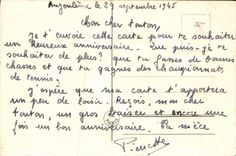 Angoulême le 29 septembre 1945
Mon cher tonton,
Je t'envoie cette carte pour te souhaiter
un heureux anniversaire. Que puis-je te
souhaiter de plus? que tu fasses de bonnes
chasses et que tu gagnes des championnats
de tennis.
J'espère que ma carte t'apportera
un peu de loisir. Reçois, mon cher
tonton, un gros baiser et encore une
fois un bon anniversaire. Ta nièce
Pierrette